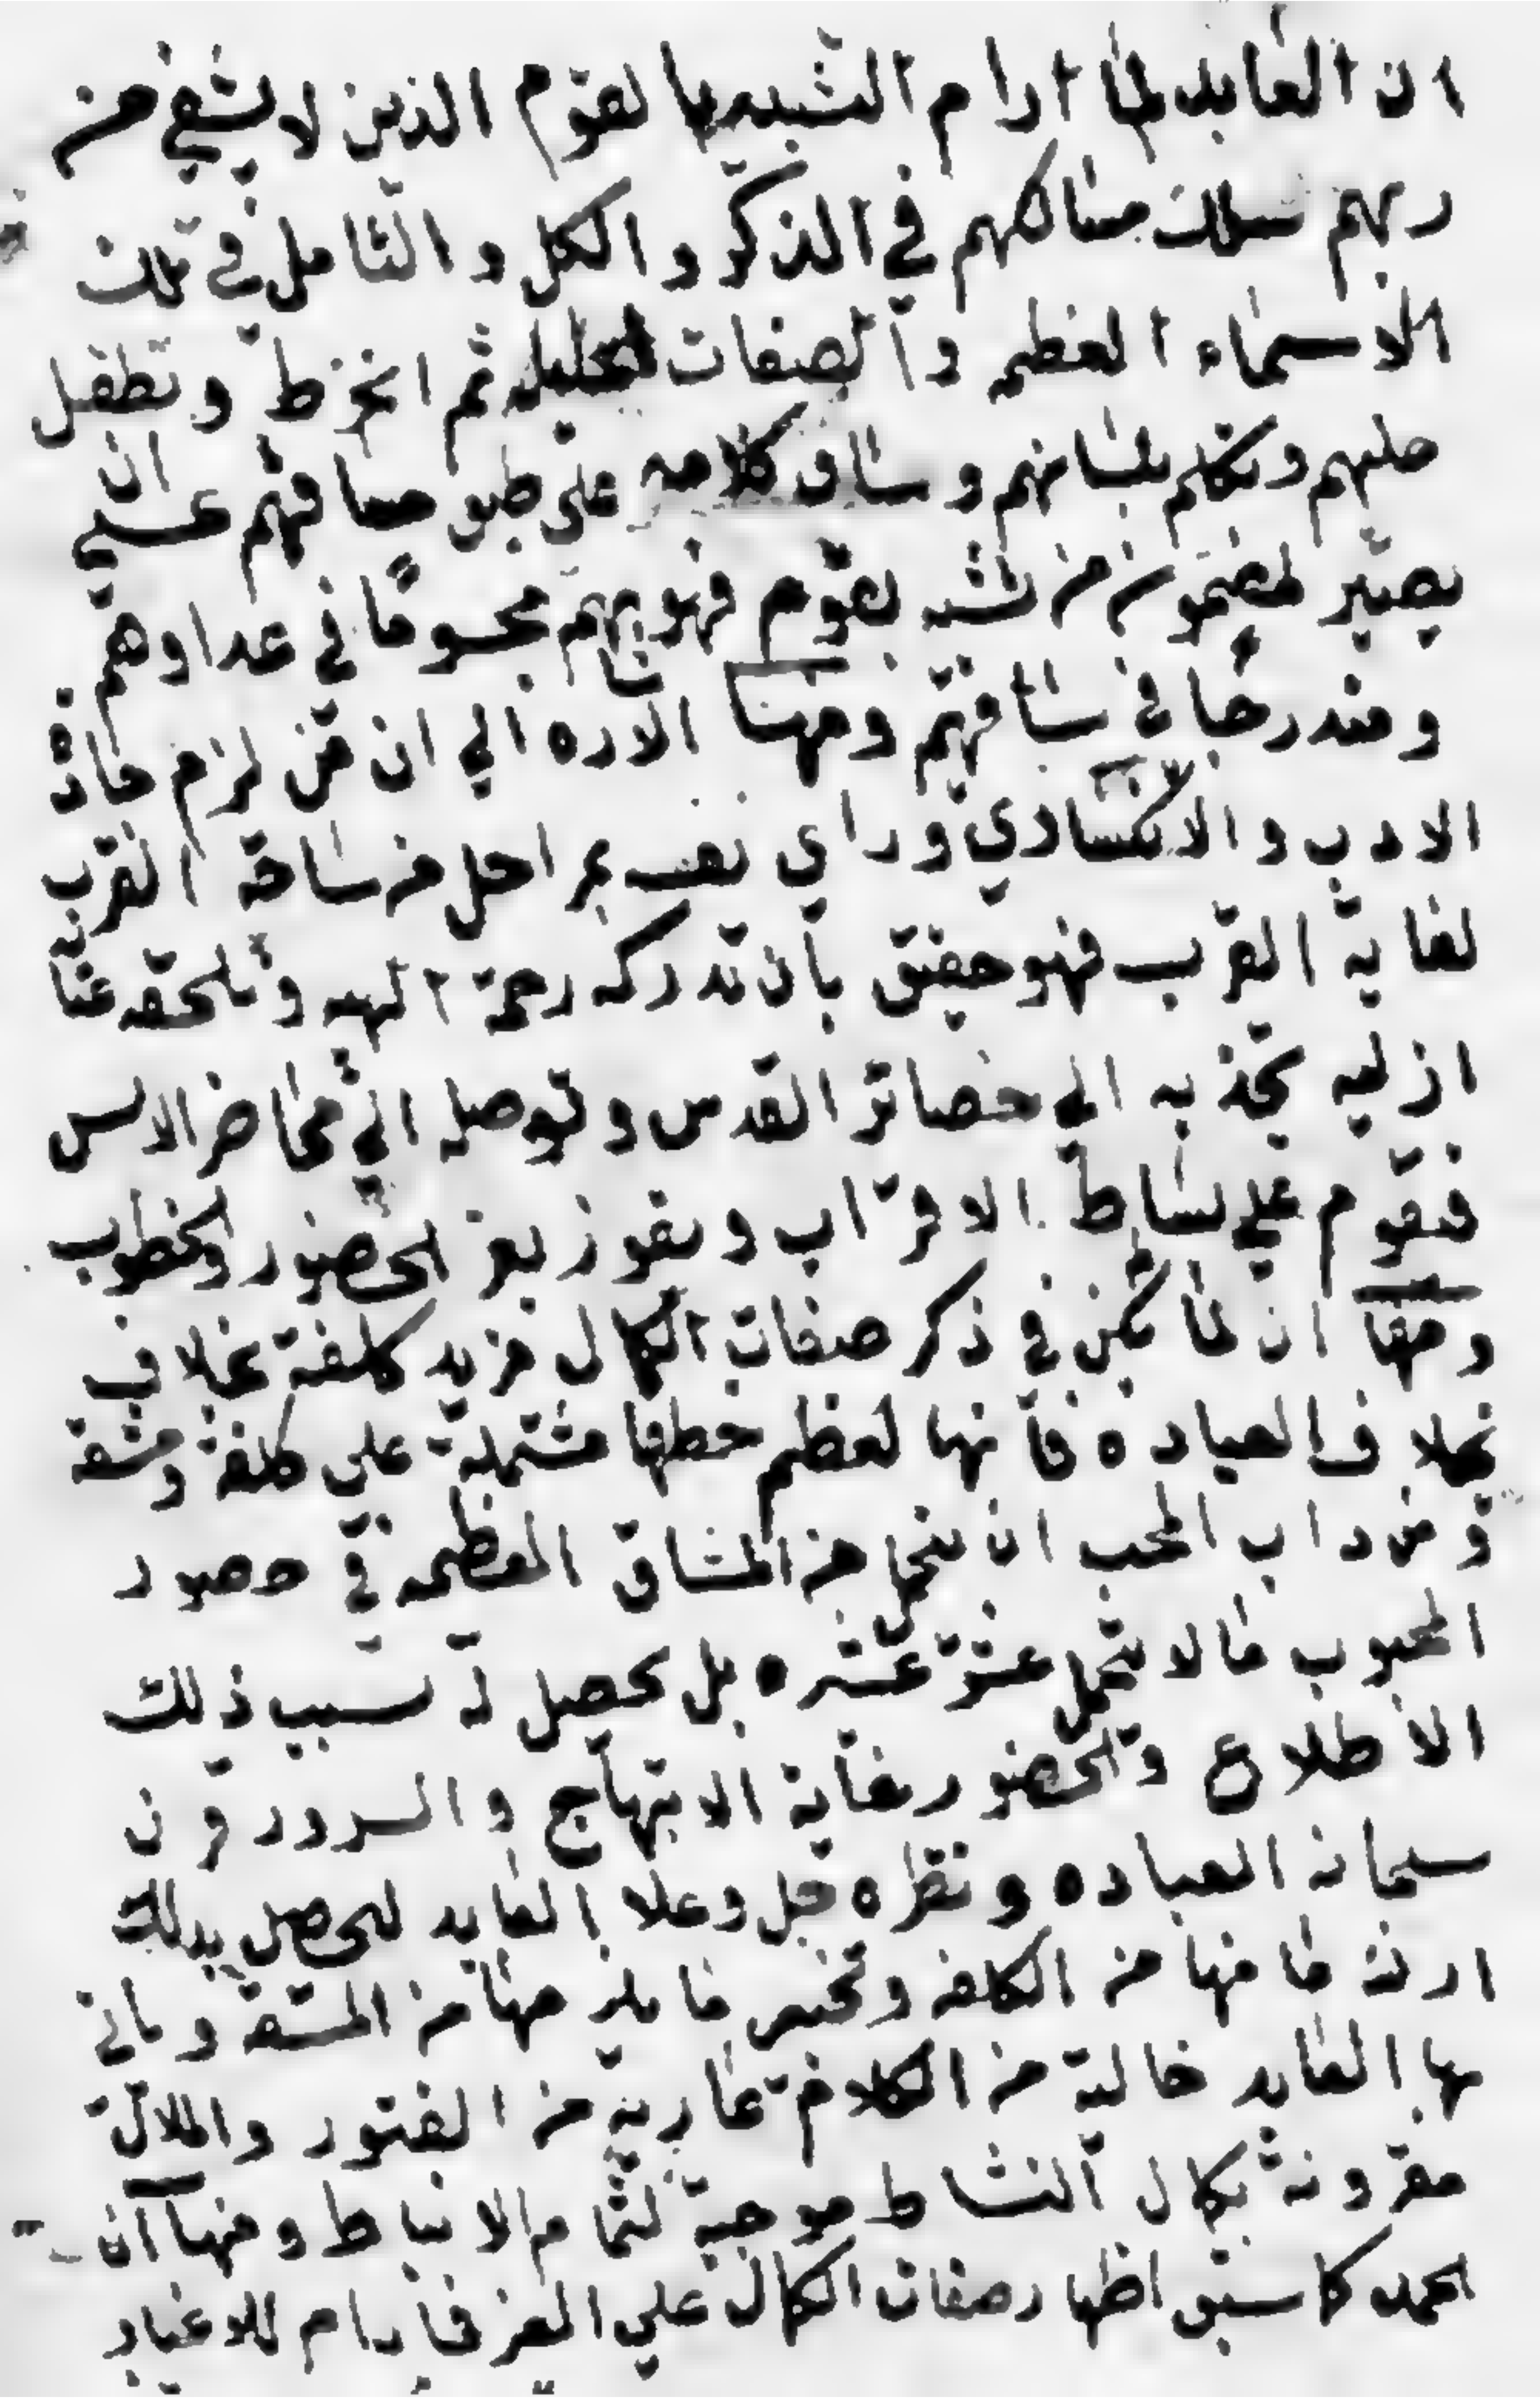 ان العابد لما ارام التشبيه بالقوم الذين لا يشقي من
ربهم سلك مسالكهم في الذكر و الكل و التامل في تلك
الاسماء العظيمه و الصفات الجليله ثم انخرط و تطفل
عليهم وتكلم بلسانهم و ساق كلامه علي طبق مساقهم عسي ان
يصير لمضمون من تشبه بقوم فهو منهم محسوبا في عدادهم
و مندرجا في ساقهم ومنها الاشاره الي ان من لزم جادة
الادب و الانكسار وراي نفسه بمراحل من ساحة القرب
لغاية القرب فهو حقيق بان تدركه رحمة الهيه وتلحقه عناية
ازليه تجذبه الي حضائر القدس و توصله الي محاضر الانس
فيقوم علي بساط الاقتراب ويفوز بعز الحضور والخطوب
ومنها ان لما يكن في ذكر صفات الكمال مزيد كلفة بخلاف
بخلاف العباده فانها لعظم خطبها مشتملة علي كلفة ومشقه
ومن داب المحب ان يتحمل من المشاق العظيمه في حضور
المحبوب ما لا يتحمل عشر عشره بل يحصل له بسبب ذلك
الاطلاع والحضور غاية الابتهاج والسرور قرن
سبحانه العباده و نظره جل وعلا العابد ليحصل بذلك
ما فيها من الكلفه و ما يلز منها من المشقه وياتي
بها العابد خالية من الكلام عاريه من الفتور والملالة
مقرونة بكمال النشاط موجبة لتمام الانبساط ومنها ان
الحمد كما سبق اظهار صفات الكمال علي الغير فما دام للاغيار